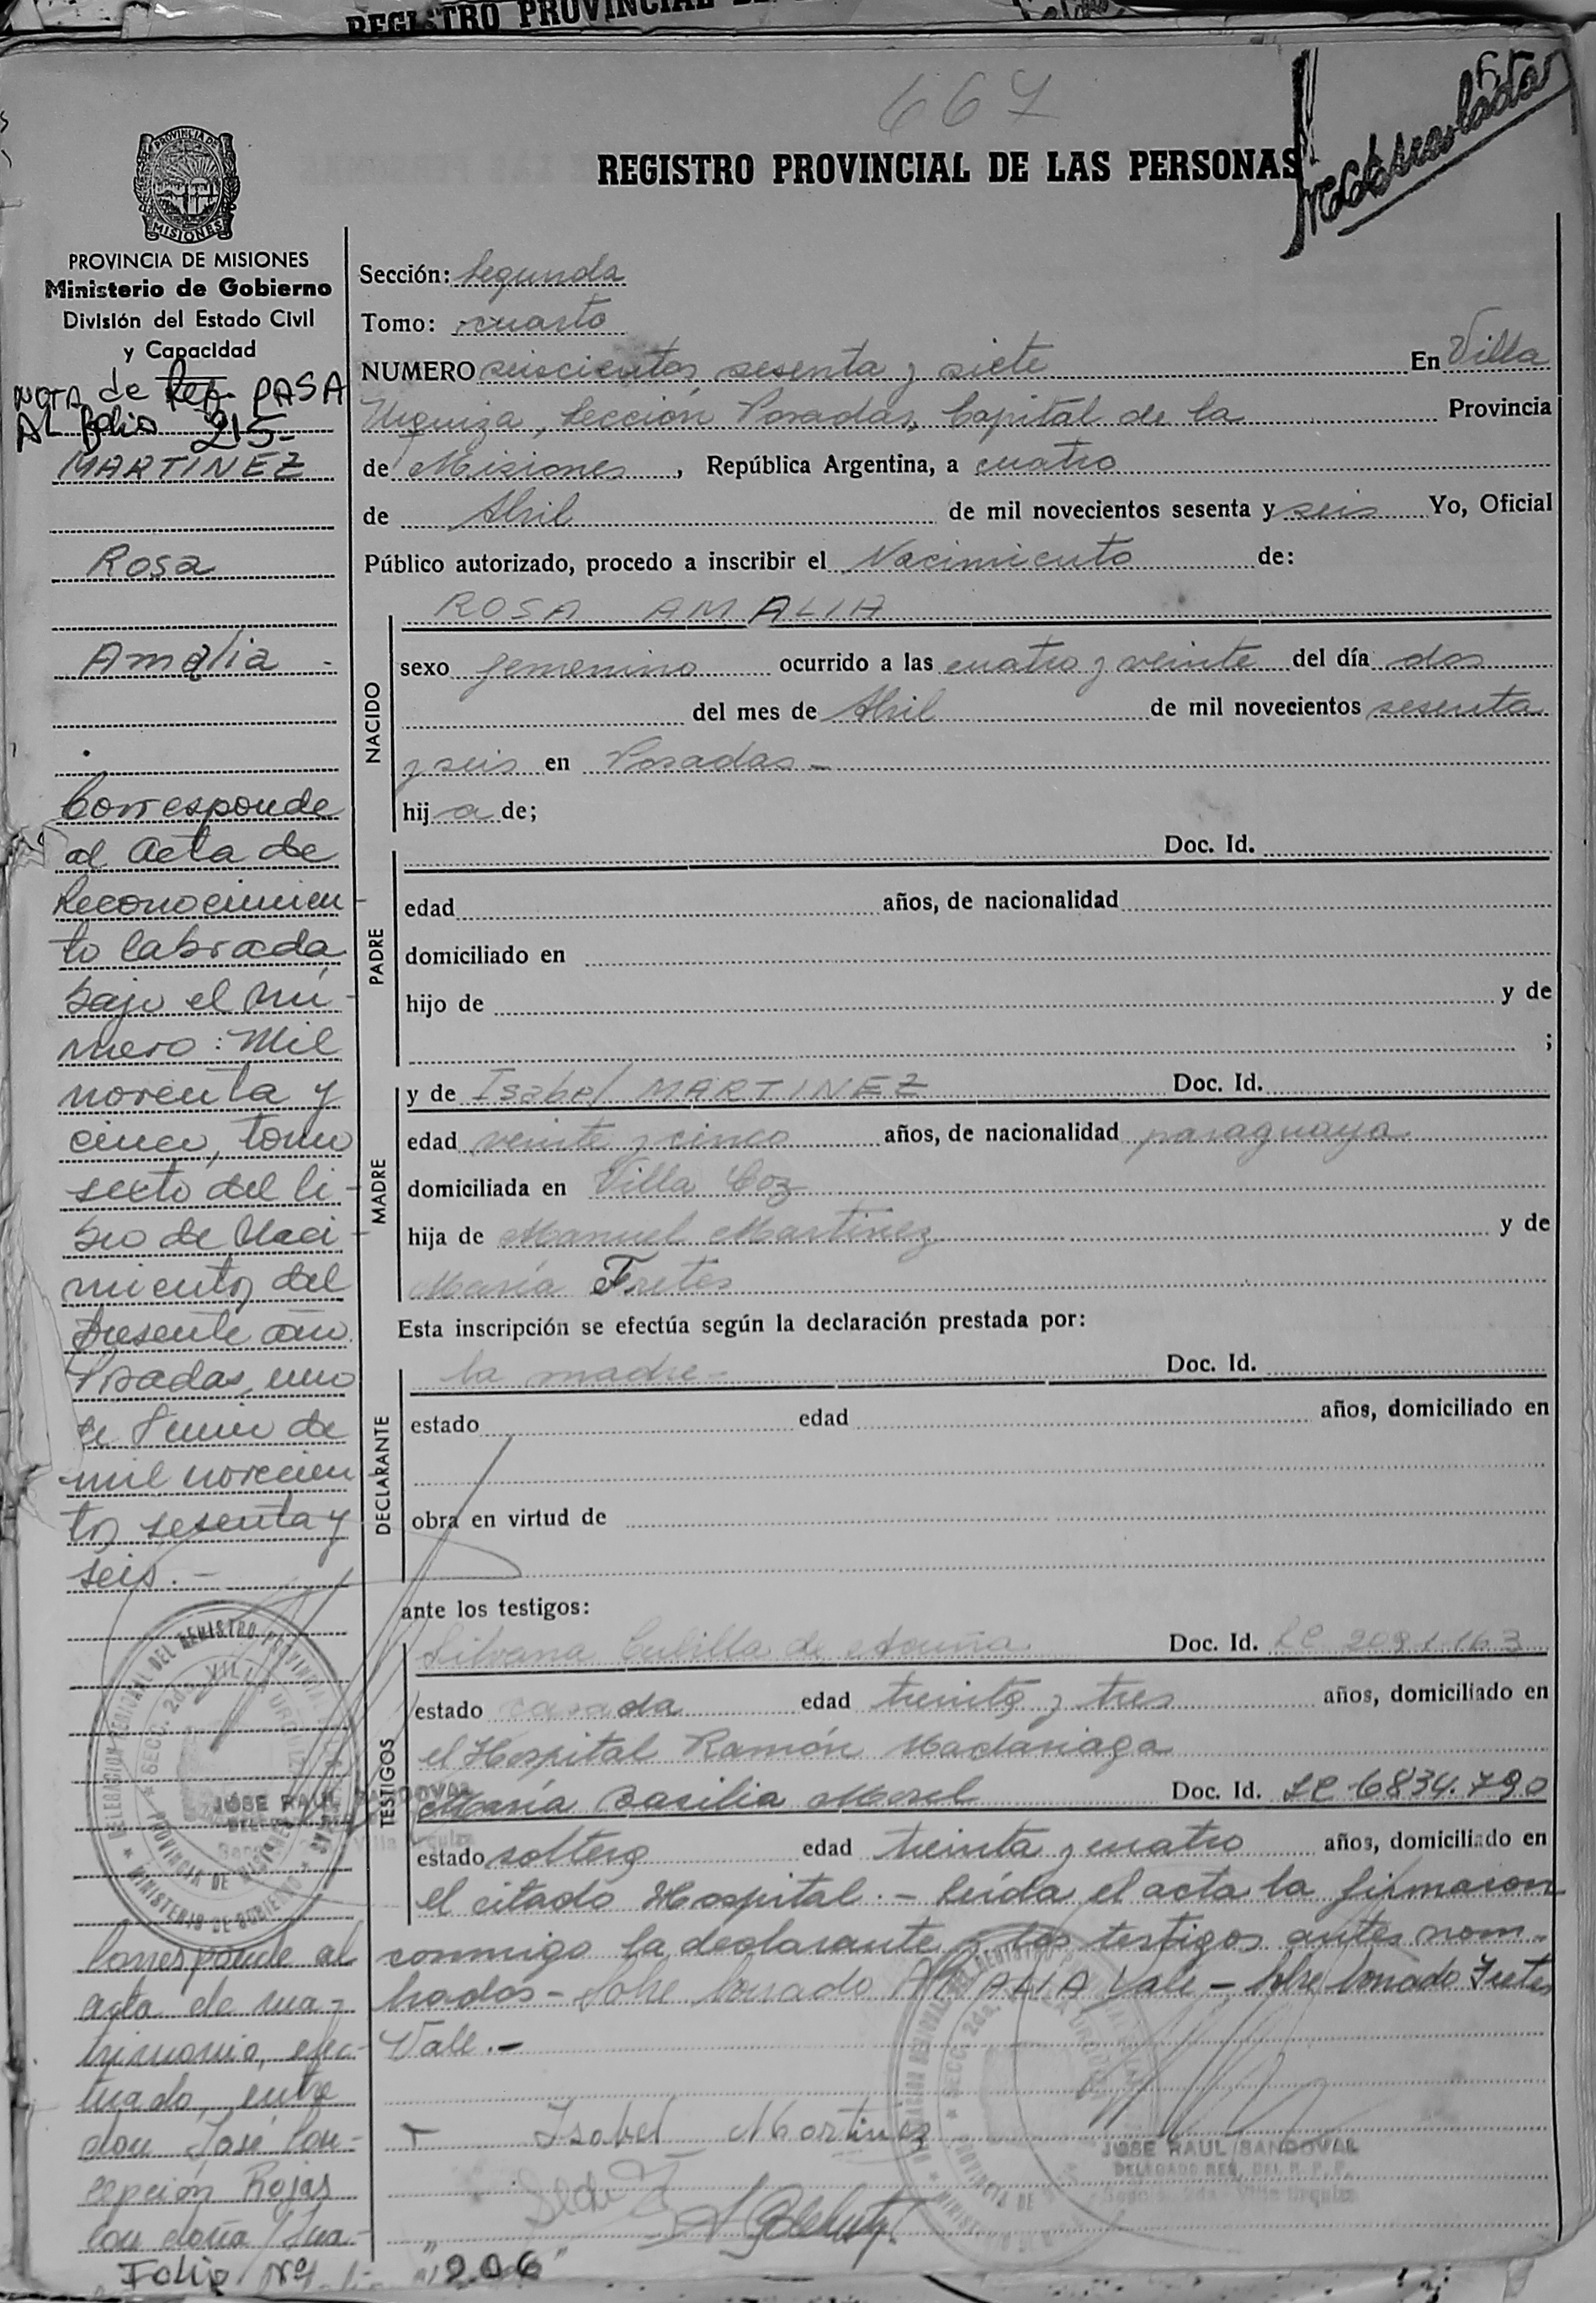 REGISTRO PROVINCIAL
667
REGISTRO PROVINCIAL DE LAS PERSONAS
PROVINCIA DE
MISIONES
PROVINCIA DE MISIONES
Ministerio de Gobierno
División del Estado Civil
y Capacidad
NOTA de PASA
AL folio 215-
MARTINEZ
Rosa
Amalia -
Corresponde
al acta de
Reconocimien
to labrada
bajo el nú-
mero: Mil
noventa y
cinco, tomo
sexto del li-
bro de Naci-
mientos del
presente año.
Posadas, uno
de Junio de
mil novecien
tos sesenta y
seis.-
Corresponde al
acta de ma-
trimonio, efec-
tuado, entre
don José Con-
cepción Rojas
con doña Jua-
Folio Nº
Sección: Segunda
Tomo: cuarto
NUMERO seiscientos sesenta y siete En Villa
Urquiza, Sección Posadas, Capital de la Provincia
de Misiones, República Argentina, a cuatro
de Abril de mil novecientos sesenta y seis Yo, Oficial
Público autorizado, procedo a inscribir el Nacimiento de:
ROSA AMALIA
NACIDO
sexo femenino ocurrido a las cuatro y veinte del día dos
del mes de Abril de mil novecientos sesenta
y seis en Posadas -
hija de;
PADRE
Doc. Id.
edad años, de nacionalidad
domiciliado en
hijo de y de
;
MADRE
y de Isabel MARTINEZ Doc. Id.
edad veinte y cinco años, de nacionalidad paraguaya
domiciliada en Villa Coz
hija de Manuel Martinez y de
María Fretes
Esta inscripción se efectúa según la declaración prestada por:
DECLARANTE
la madre - Doc. Id.
estado edad años, domiciliado en
obra en virtud de
ante los testigos:
TESTIGOS
Silvana Cubilla de Acuña Doc. Id. LC 2091163
estado casada edad treinta y tres años, domiciliado en
el Hospital Ramón Madariaga
María Basilia Morel Doc. Id. LC 6834.790
estado soltera edad treinta y cuatro años, domiciliado en
el citado Hospital.- Leída el acta la firmaron
conmigo la declarante y los testigos antes nom-
brados - Sobre borrado AMALIA Vale - Sobre borrado Fretes
Vale.-
Isabel Martinez
JOSE RAUL SANDOVAL
DELEGADO REG. DEL R. P. P.
Secció. 2da. Villa Urquiza
JOSE RAUL SANDOVAL
"206"